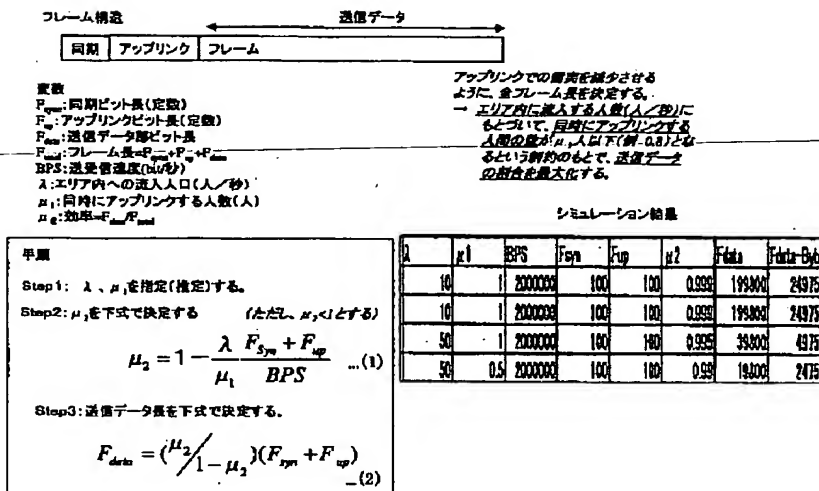 フレーム構造
送信データ
同期 アップリンク フレーム
変数
F_sync:同期ビット長(定数)
F_up:アップリンクビット長(定数)
F_data:送信データ部ビット長
F_total:フレーム長=F_sync+F_up+F_data
BPS:送受信速度(bit/秒)
λ:エリア内への流入人口(人/秒)
μ1:同時にアップリンクする人数(人)
μ2:効率=F_data/F_total
アップリンクでの衝突を減少させる
ように、全フレーム長を決定する。
→ エリア内に流入する人数(人/秒)に
もとづいて、同時にアップリンクする
人間の数がμ1人以下(例-0.8)とな
るという制約のもとで、送信データ
の割合を最大化する。
手順
Step1: λ、μ1を指定(推定)する。
Step2:μ2を下式で決定する (ただし、μ2<1とする)
μ2 = 1 − λ/μ1 (F_Syn + F_up)/BPS ...(1)
Step3:送信データ長を下式で決定する。
F_data = (μ2/1 − μ2)(F_syn + F_up) ...(2)
シミュレーション結果
λ μ1 BPS Fsyn Fup μ2 Fdata Fdata-Byt
10 1 2000000 100 100 0.999 199800 24975
10 1 2000000 100 100 0.999 199800 24975
50 1 2000000 100 100 0.995 39800 4975
50 0.5 2000000 100 100 0.99 19800 2475